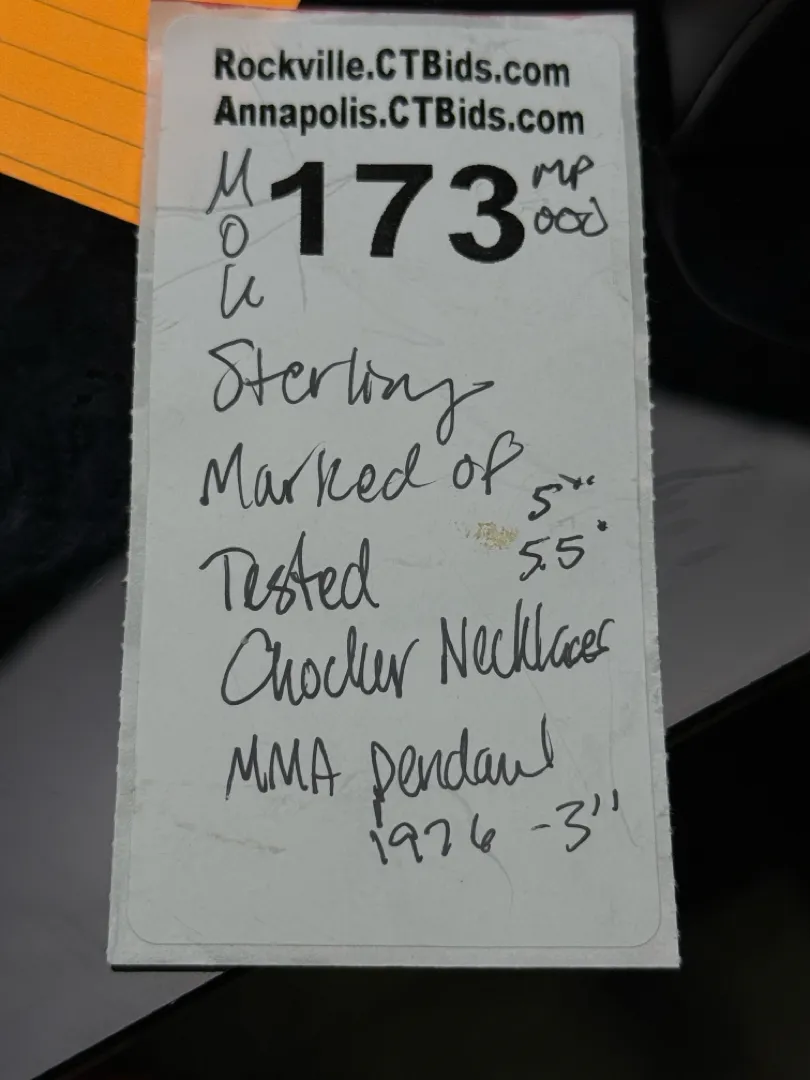 Rockville.CTBids.com
Annapolis.CTBids.com
173
MP
Sterling
Marked or
5"
Tested
5.5"
Chocker Necklaces
MMA pendant
1976 -3"